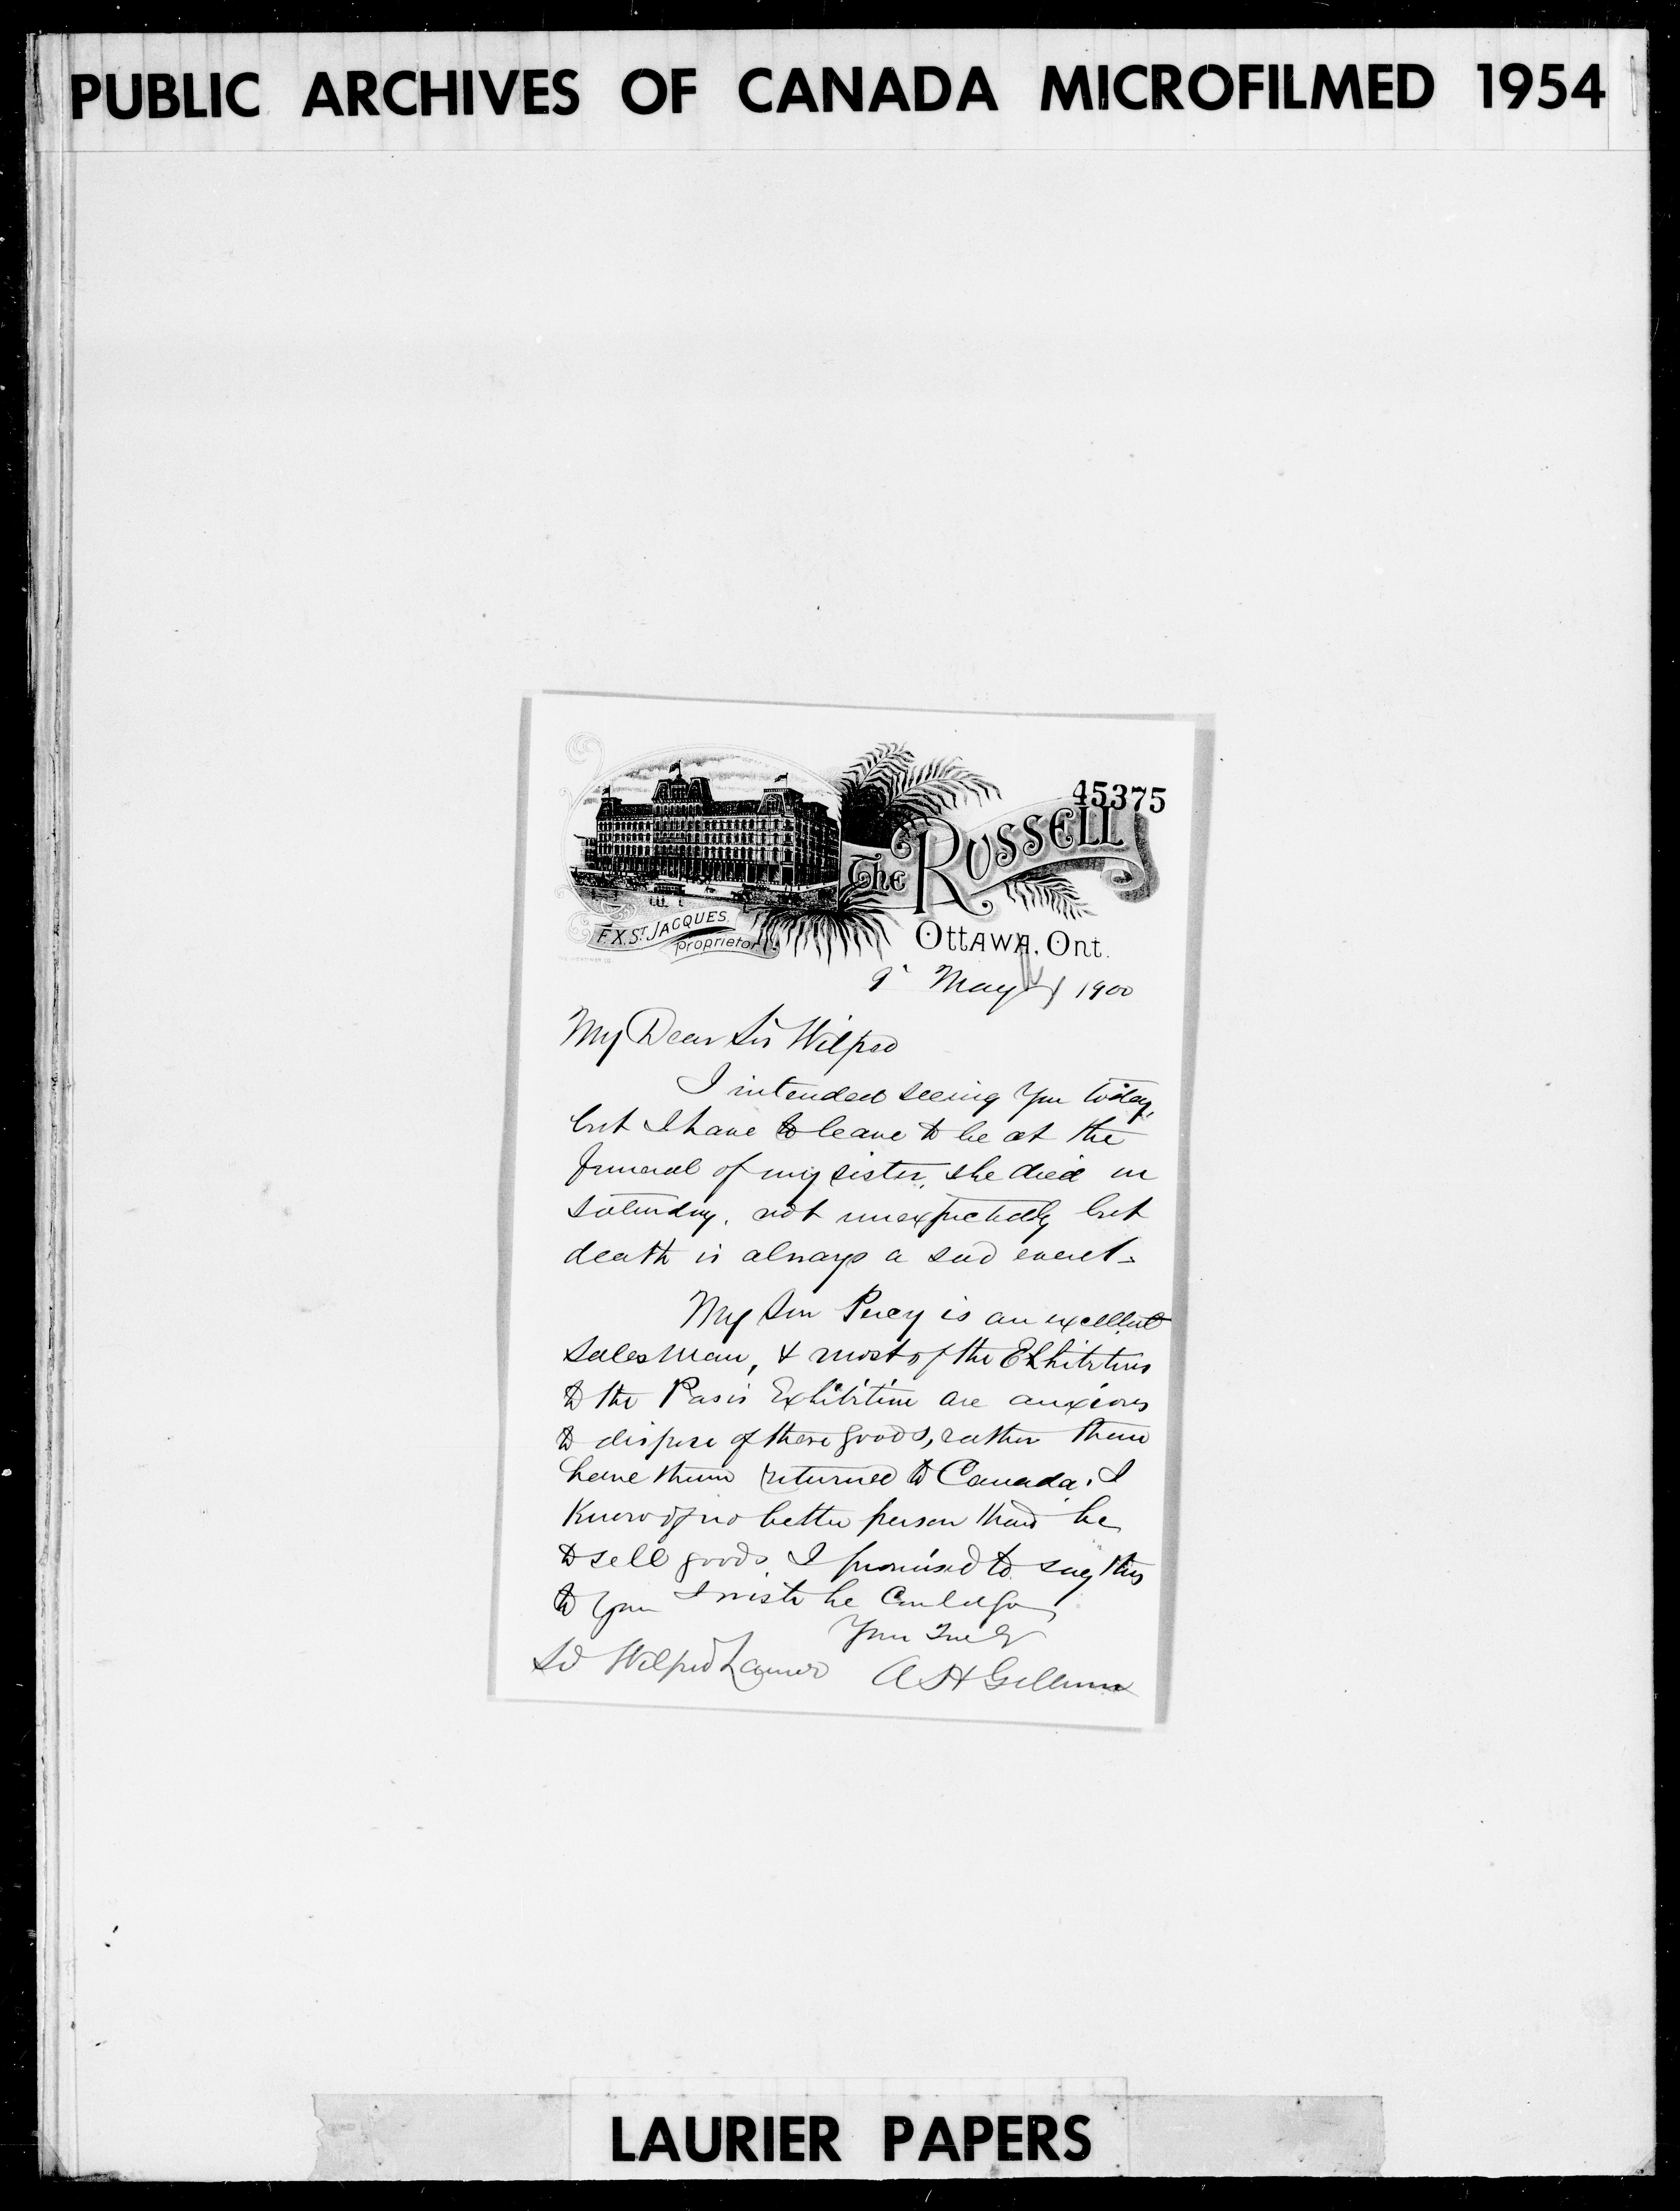 PUBLIC ARCHIVES OF CANADA MICROFILMED 1954
45375
The RUSSELL
F.X. ST. JACQUES.
Proprietor.
OTTAWA, Ont.
9 May 1900
My Dear Sir Wilfred
I intended seeing you today,
but I have to leave to be at the
funeral of my sister, she died on
Saturday, not unexpectedly but
death is always a sad event-
My Son Percy is an excellent
salesman, & most of the Exhibitors
to the Paris Exhibition are anxious
to dispose of there goods, rather than
have them returned to Canada, I
know of no better person than he
to sell goods. I promised to say this
to you I wish he could go
Yours Truly
Sir Wilfred Laurier
A H
LAURIER PAPERS